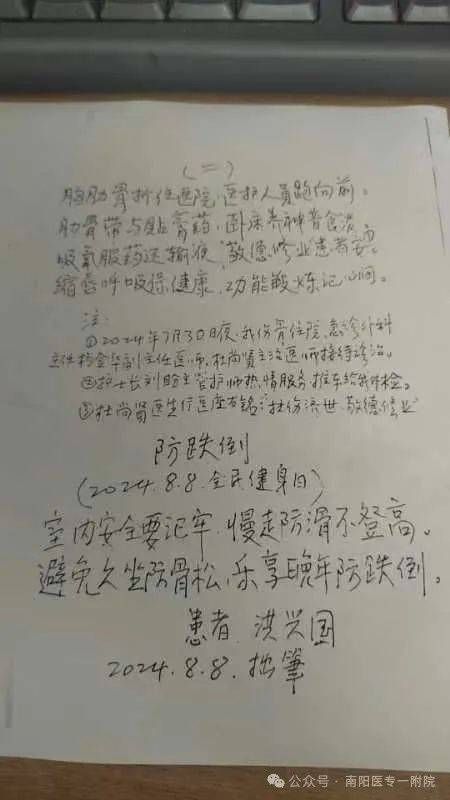 (二)
胸肋骨折住医院,医护人员跑向前。
肋骨带与贴膏药,卧床养神普食
吸氧服药还输液,敬德修业患者安。
缩唇呼吸保健康,功能锻炼记心间。
注:
①2024年7月30日夜,我伤骨住院,急诊外科
主任 副主任医师,杜尚贤主治医师接待诊治。
②护士长刘 主管护师热情服务推车给我体检。
③杜尚贤医生行医座右铭:扶伤济世,敬德修业
防跌倒
(2024.8.8.全民健身日)
室内安全要记牢,慢走防滑不登高。
避免久坐防骨松,乐享晚年防跌倒。
患者 洪兴国
2024.8.8.拙筆
公众号·南阳医专一附院